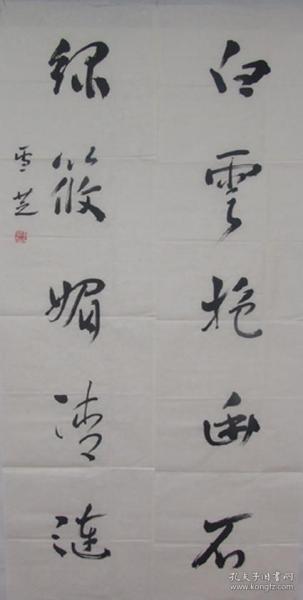 白雲抱幽石
綠筱媚清漣
雪芝
孔夫子旧书网
www.kongfz.com